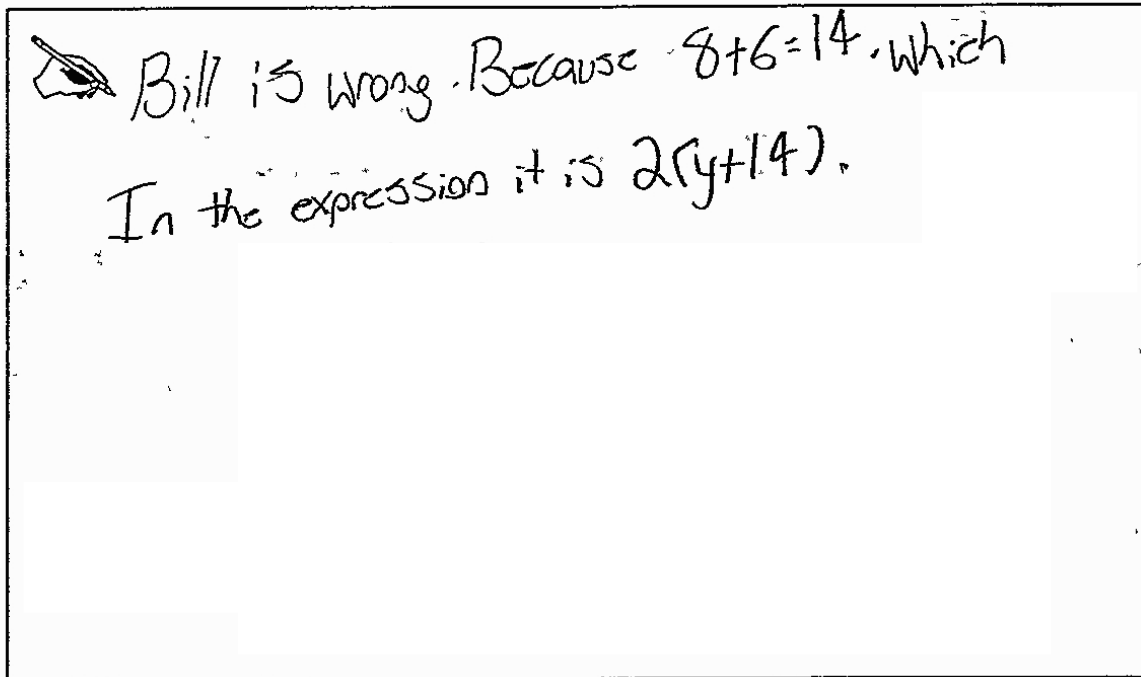 Bill is wrong. Because 8+6=14. which
In the expression it is 2(y+14).